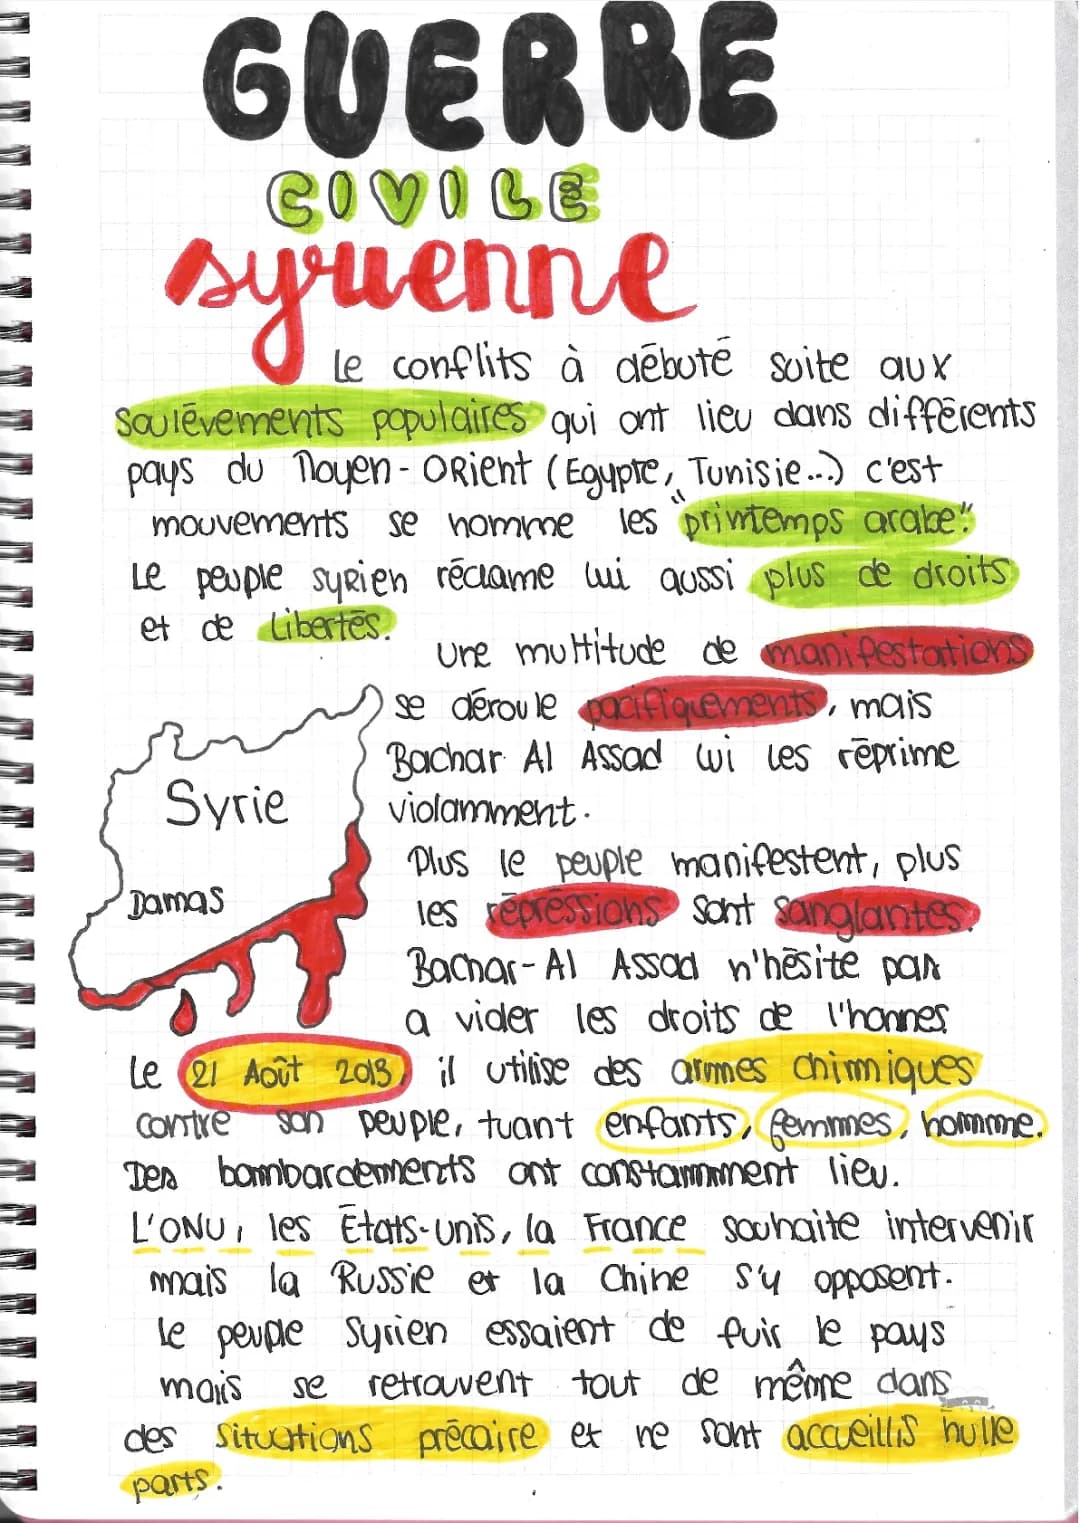 GUERRE
CIVILE
syrienne
Le conflits à débuté suite aux
soulévements populaires qui ont lieu dans différents
pays du Moyen-Orient (Egypte, Tunisie...) c'est
mouvements se nomme les "printemps arabe."
Le peuple syrien réclame lui aussi plus de droits
et de libertés.
Une multitude de manifestations
se déroule pacifiquements, mais
Bachar Al Assad lui les réprime
violamment.
Plus le peuple manifestent, plus
les répréssions sont sanglantes.
Bachar-Al Assad n'hésite pas
a vider les droits de l'honnes
Syrie
Damas
Le 21 Août 2013, il utilise des armes chimiques
contre son peuple, tuant enfants, femmes, homme.
Des bombardements ont constamment lieu.
L'ONU, les États-unis, la France souhaite intervenir
mais la Russie et la Chine s'y opposent.
Le peuple Syrien essaient de fuir le pays
mais se retrouvent tout de même dans
des situations précaire et ne sont accueillis nulle
parts.